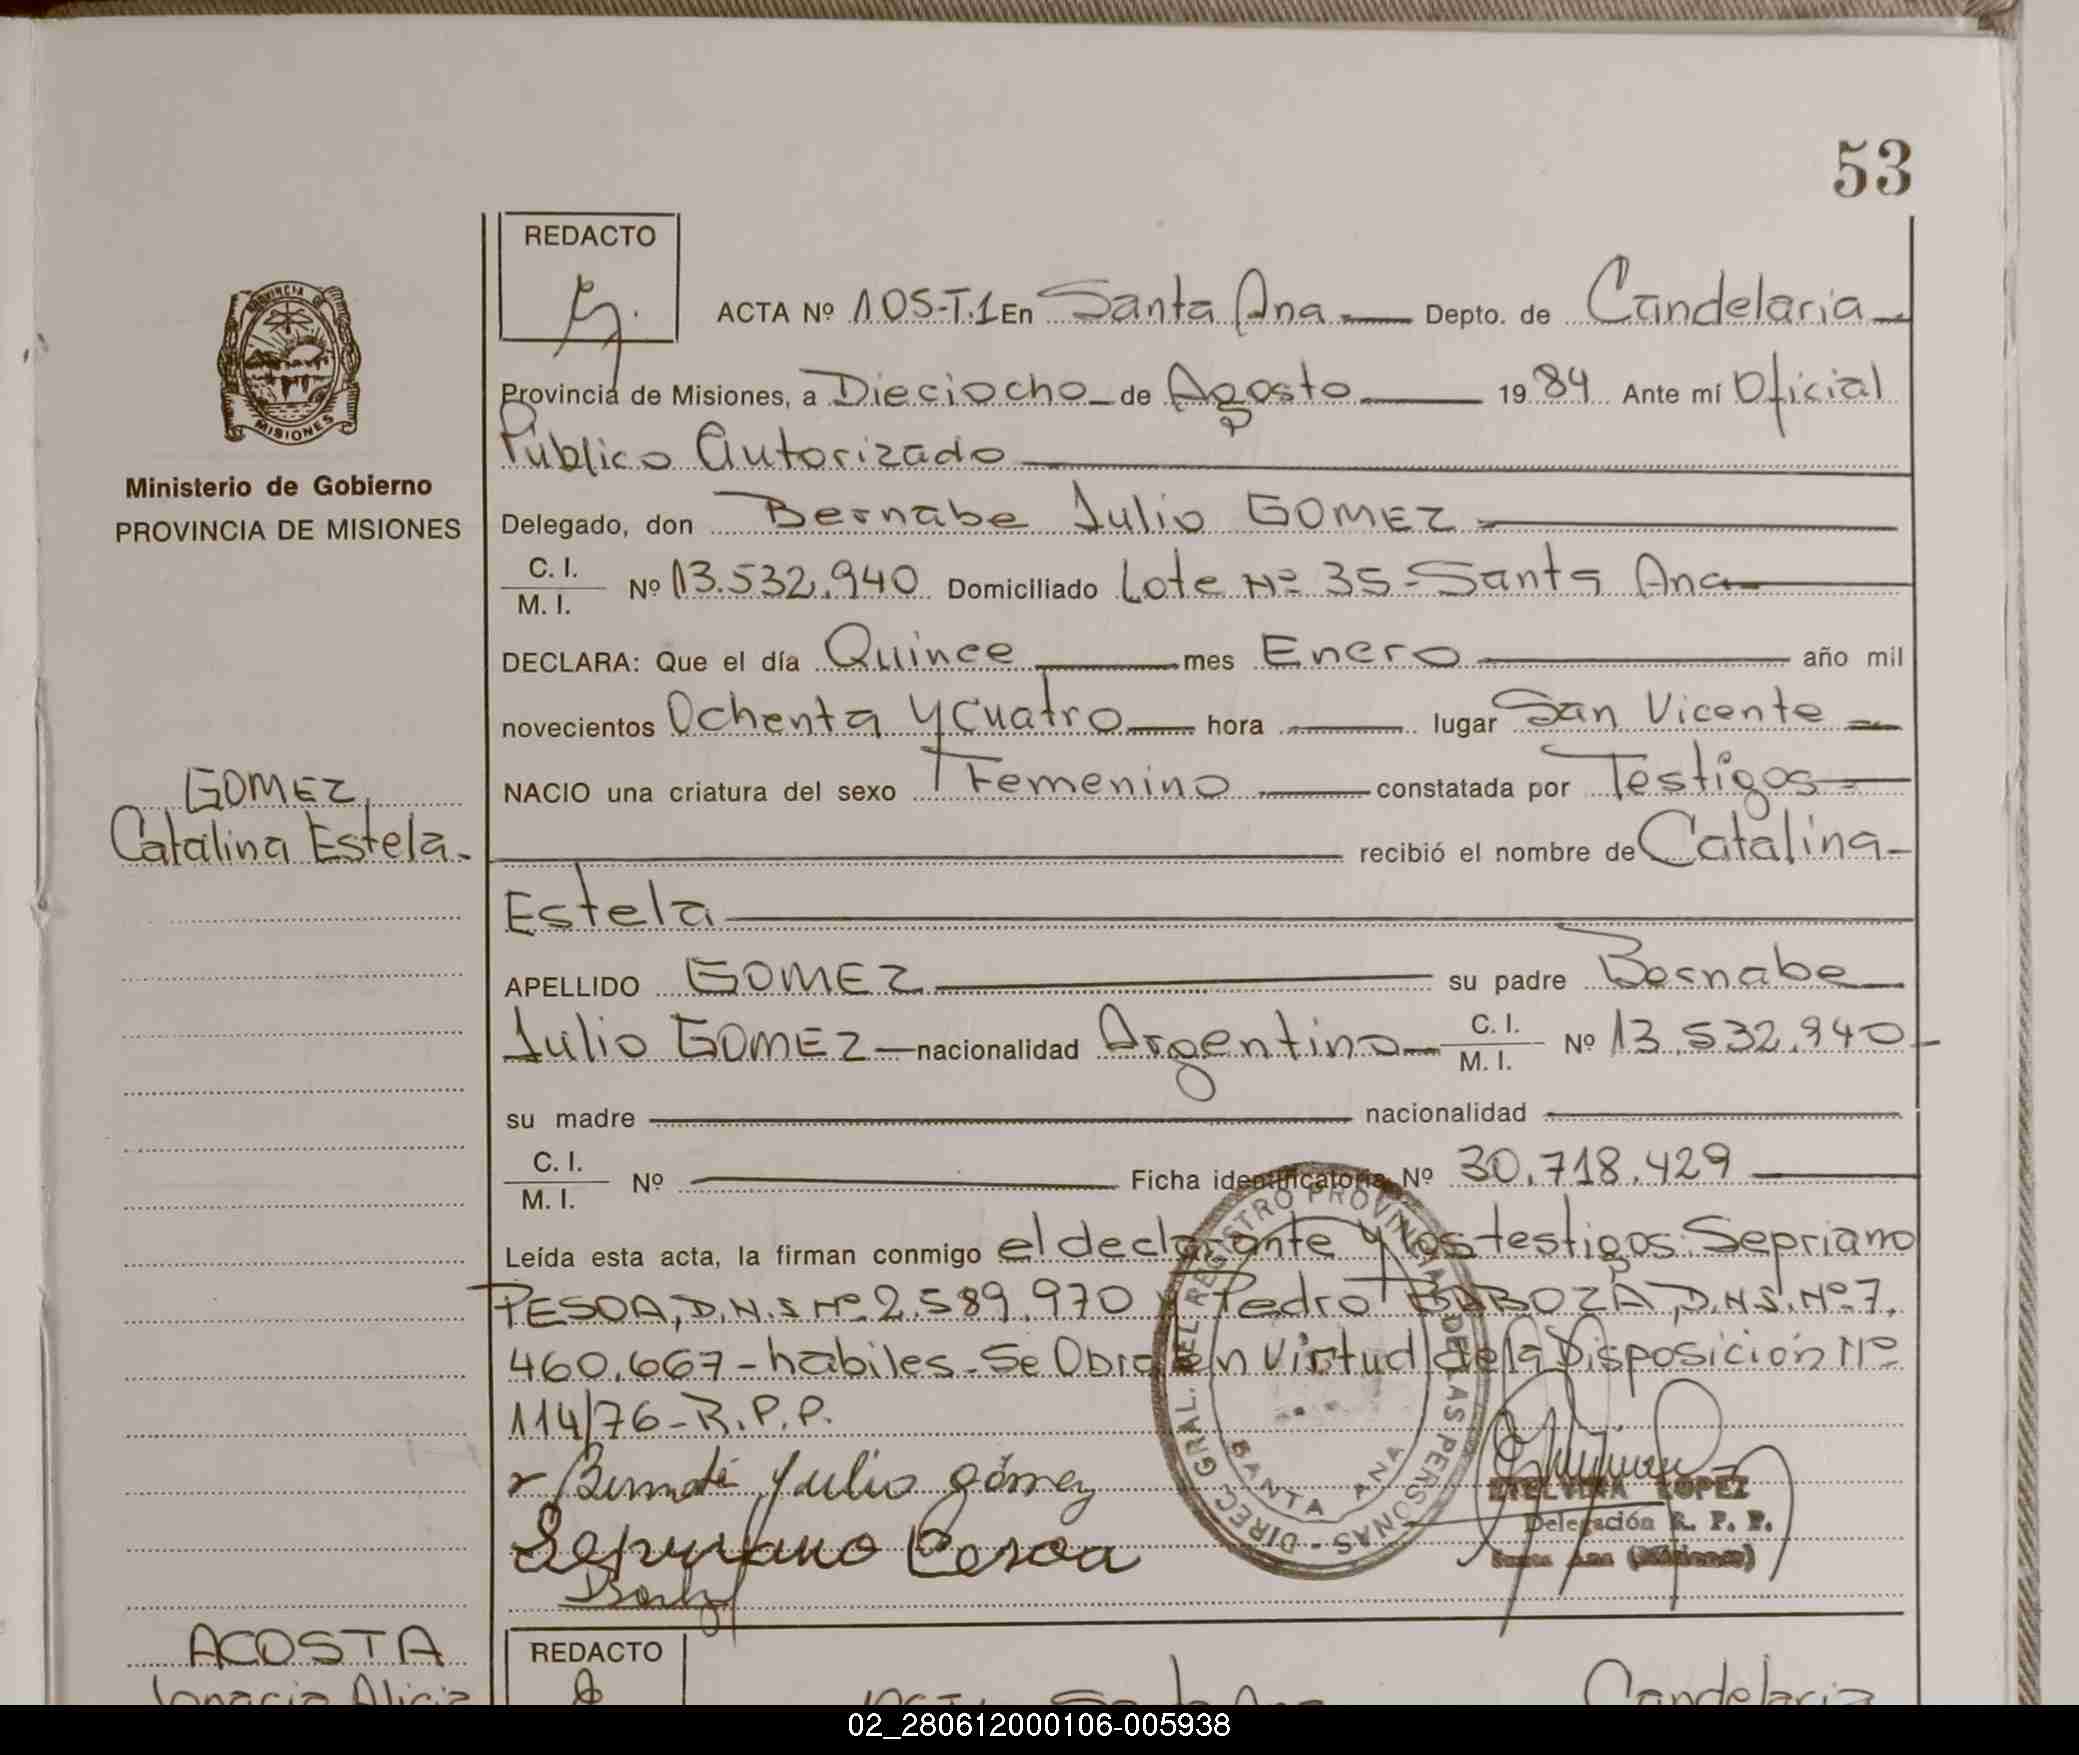 53
REDACTO
ACTA Nº 105-T.1 En Santa Ana Depto. de Candelaria
PROVINCIA DE
MISIONES
Provincia de Misiones, a Dieciocho de Agosto 1984 Ante mí Oficial
Público Autorizado
Ministerio de Gobierno
PROVINCIA DE MISIONES
Delegado, don Bernabe Julio GOMEZ
C. I.
M. I. Nº 13.532.940 Domiciliado Lote Nº 35-Santa Ana
DECLARA: Que el día Quince mes Enero año mil
novecientos Ochenta y Cuatro hora lugar San Vicente
NACIO una criatura del sexo Femenino constatada por Testigos
GOMEZ,
Catalina Estela.
recibió el nombre de Catalina
Estela
APELLIDO GOMEZ su padre Bernabe
Julio GOMEZ nacionalidad Argentino C. I. M. I. Nº 13.532.940
su madre nacionalidad
C. I.
M. I. Nº Ficha identificatoria Nº 30.718.429
Leída esta acta, la firman conmigo el declarante y los testigos: Sepriano
PESOA, D.N.I. Nº 2.589.970 y Pedro BARBOZA, D.N.I. Nº 7.
460.667-habiles-Se Obra en virtud de la Disposición Nº
114/76-R.P.P.
Julio gómez
Sepriano Pesoa
DIREC GRAL. DEL REGISTRO PROVINCIAL DE LAS PERSONAS -
SANTA ANA
ETELVINA LOPEZ
Delegación R. P. P.
Santa Ana (Misiones)
ACOSTA
Ignacia Alicia
REDACTO
Santa Ana Candelaria
02_280612000106-005938